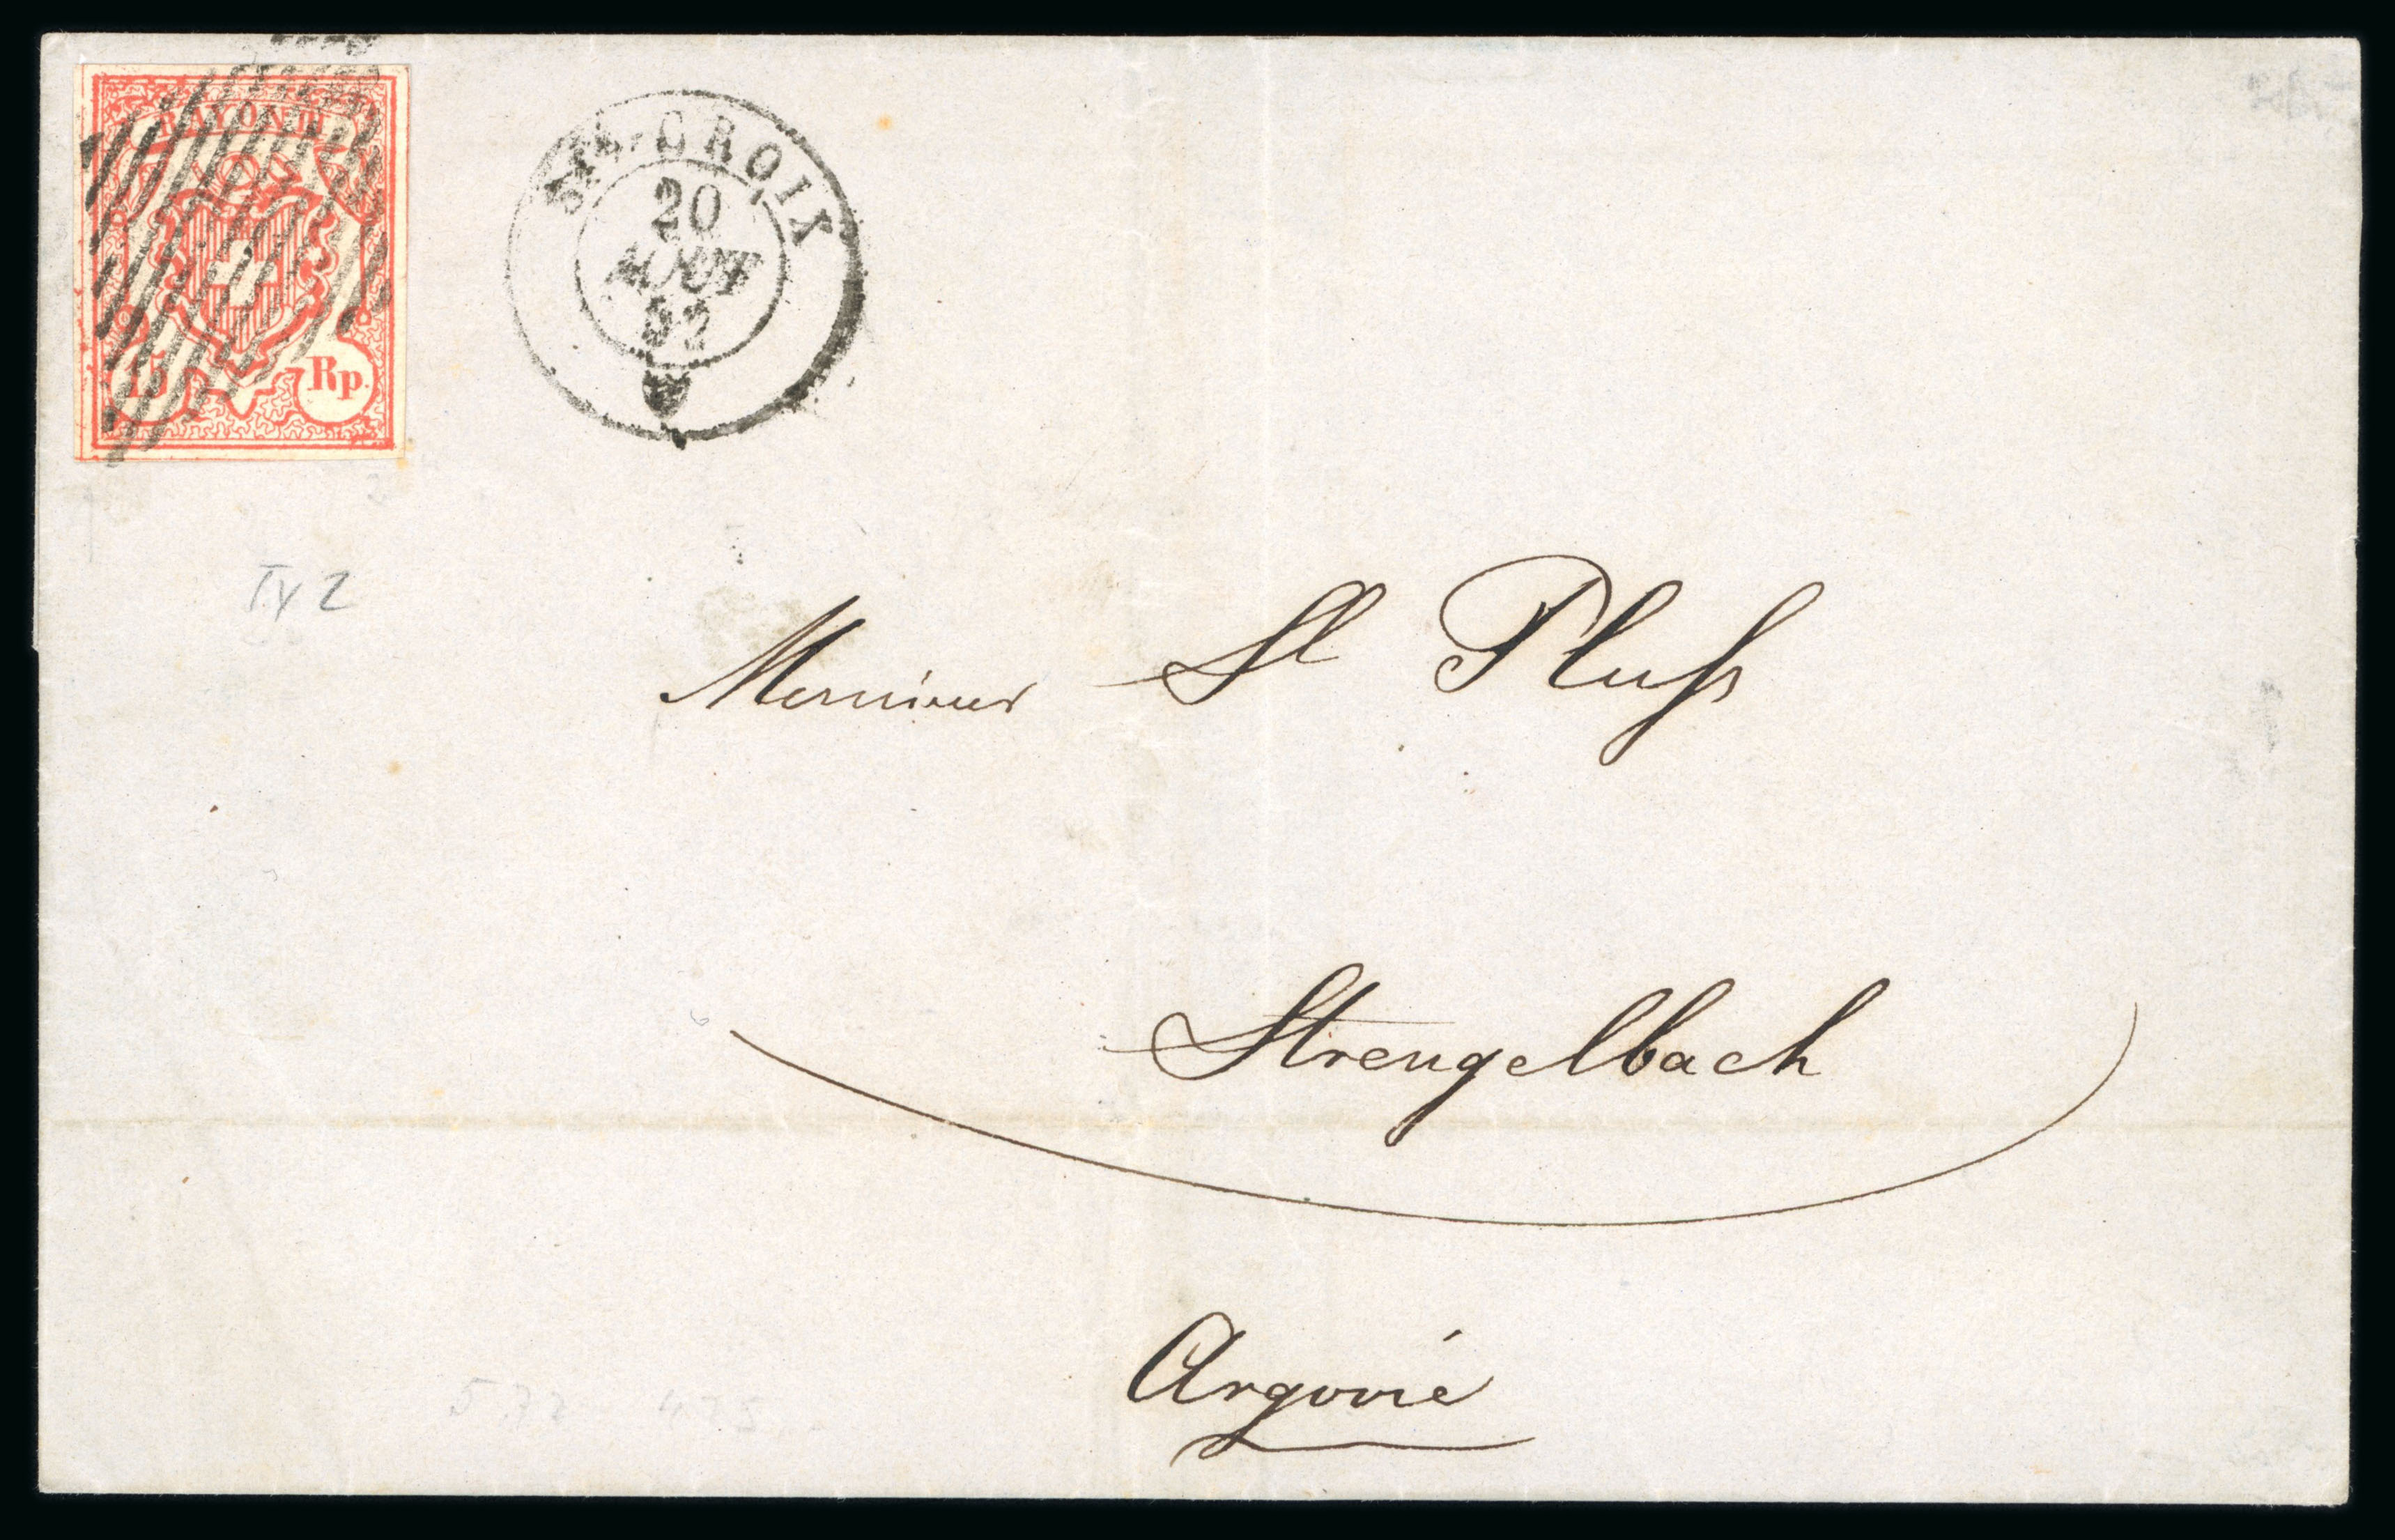 RAYON III
15 Rp.
STE. CROIX
20
AOUT
52
Ty 2
Monsieur Sl Plüss
Strengelbach
Argovie